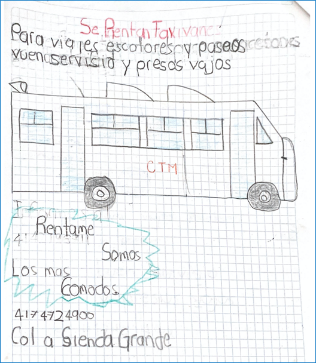 Se Rentan
Para viajes escolores y paseos
vuen servisio y presos vajos
CTM
Rentame
4.
Somos
Los mas
Comodos
4174724900
Col a Sienda Grande